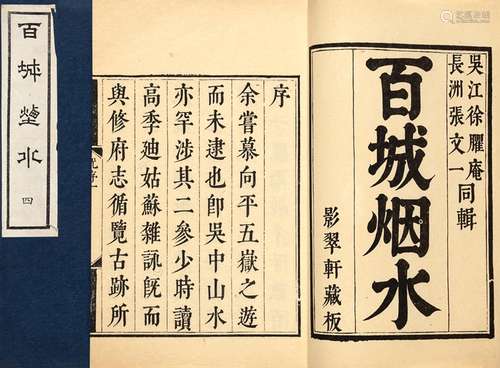 吳江徐臞庵
長洲張文一同輯
百城烟水
影翠軒藏板
序
余嘗慕向平五嶽之遊
而未逮也卽吳中山水
亦罕涉其二參少時讀
高季迪姑蘇雜詠旣而
與修府志循覽古跡所
百城煙水
四